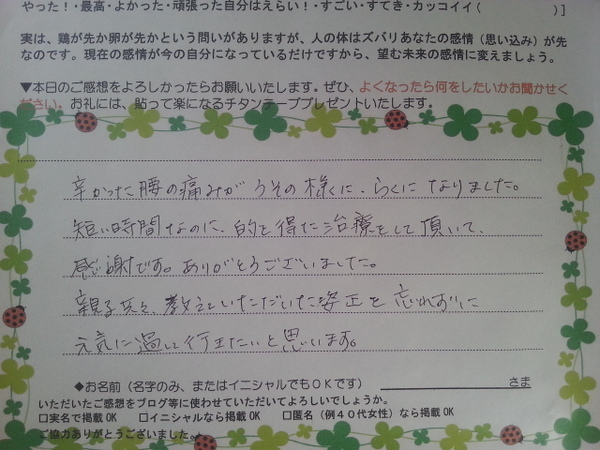 やった！・最高・よかった・頑張った自分はえらい！・すごい・すてき・カッコイイ（　　　　　　　）]
実は、鶏が先か卵が先かという問いがありますが、人の体はズバリあなたの感情（思い込み）が先
なのです。現在の感情が今の自分になっているだけですから、望む未来の感情に変えましょう。
▼本日のご感想をよろしかったらお願いいたします。ぜひ、よくなったら何をしたいかお聞かせく
ださい。お礼には、貼って楽になるチタンテーププレゼントいたします。
辛かった腰の痛みがうその様に、らくになりました。
短い時間なのに、的を得た治療をして頂いて、
感謝です。ありがとうございました。
親子共々、教えていただいた姿正を忘れずに
元気に過して行きたいと思います。
◆お名前（名字のみ、またはイニシャルでもOKです）　　　　　　　　　さま
いただいたご感想をブログ等に使わせていただいてよろしいでしょうか。
□実名で掲載OK　□イニシャルなら掲載OK　□匿名（例４０代女性）なら掲載OK
ご協力ありがとうございました。